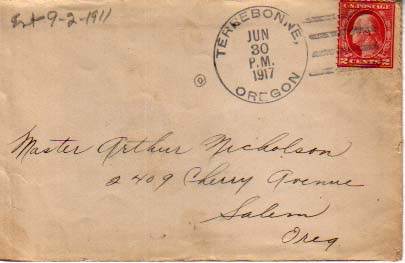 Est 9-2-1911
TERREBONNE,
JUN
30
P.M.
1917
OREGON
U.S. POSTAGE
2 CENTS 2
Master Arthur Nicholson
2409 Cherry Avenue
Salem
Oreg